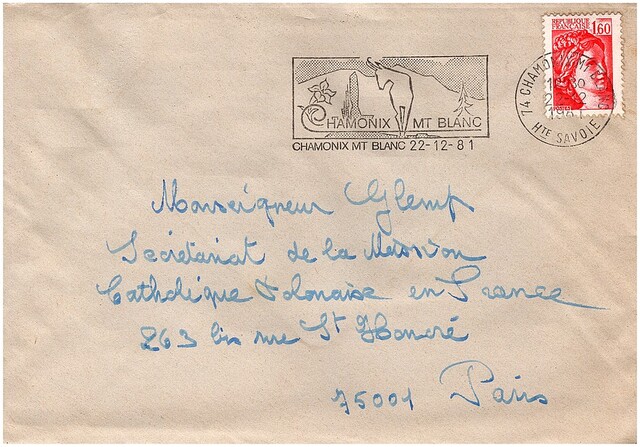 REPUBLIQUE
FRANCAISE
1,60
74 CHAMONIX MT
HTE SAVOIE
CHAMONIX MT BLANC
CHAMONIX MT BLANC 22-12-81
Monseigneur Glemp
Secrétariat de la Mission
Catholique Polonaise en France
263 bis rue St Honoré
75001 Paris